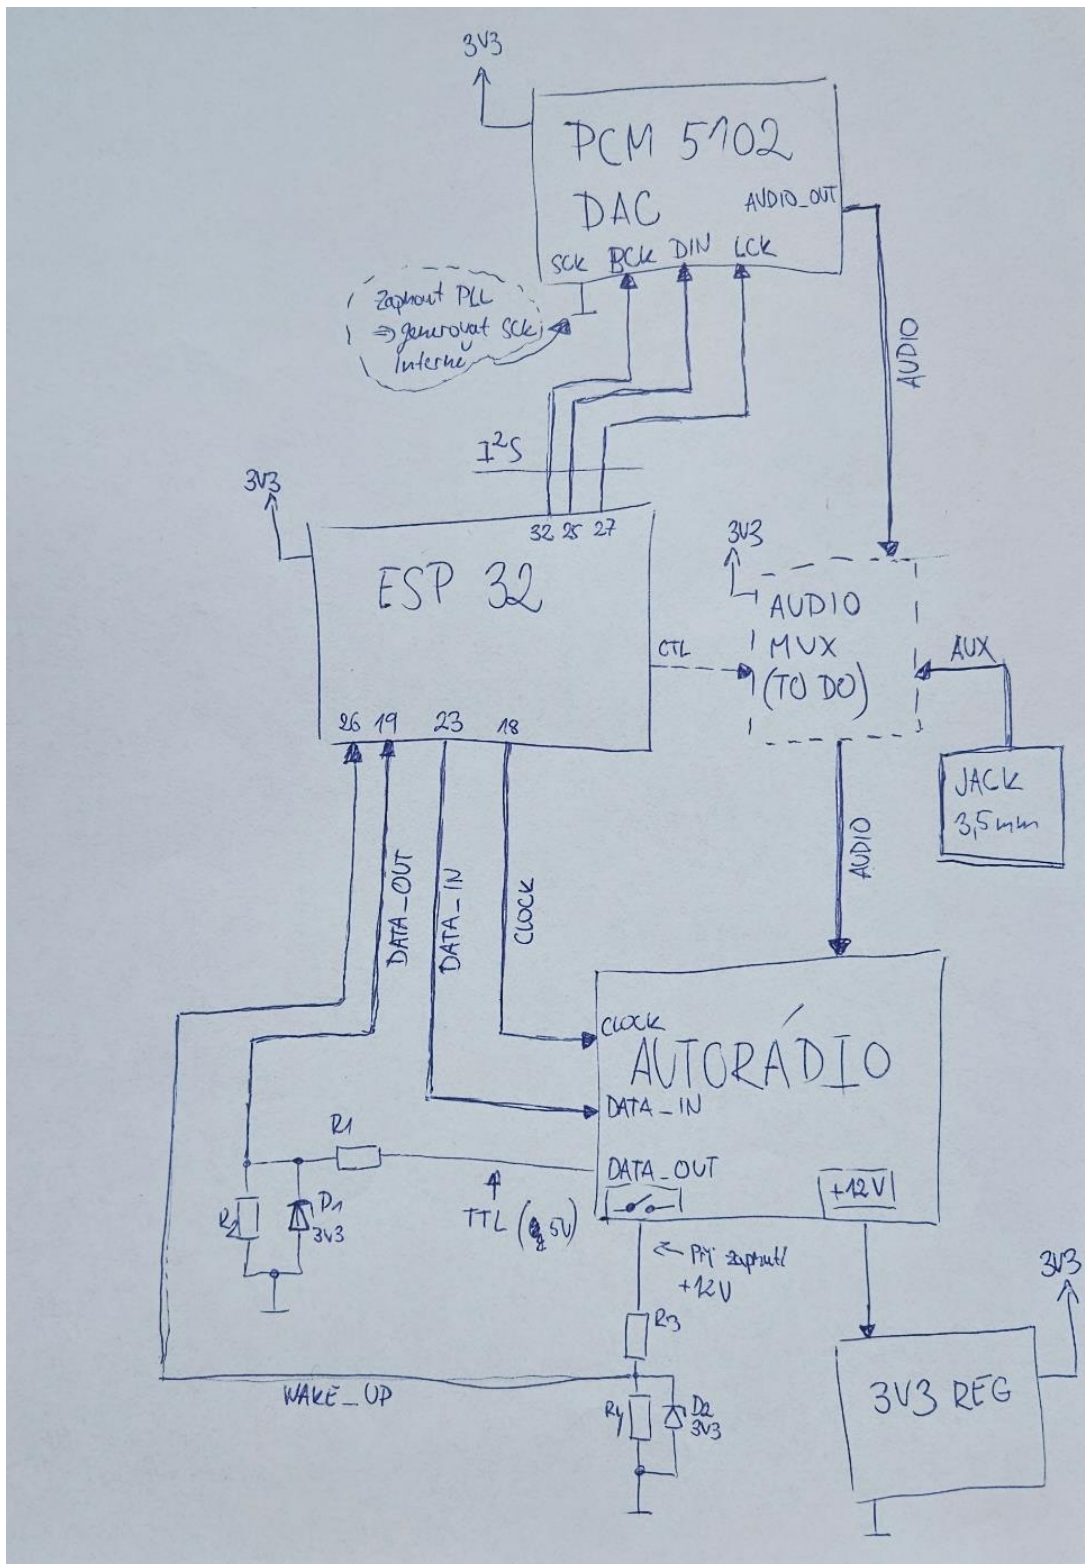 3V3
PCM 5102
DAC
AUDIO_OUT
SCK BCK DIN LCK
Zapnout PLL
⇒ generovat SCK
Interně
AUDIO
I²S
3V3
32 25 27
ESP 32
3V3
AUDIO
MUX
(TO DO)
CTL
AUX
JACK
3,5mm
26 19 23 18
DATA_OUT
DATA_IN
CLOCK
AUDIO
CLOCK
AUTORÁDIO
DATA_IN
R1
DATA_OUT
+12V
R2
D1
3V3
TTL (5V)
Při zapnutí
+12V
3V3
R3
WAKE_UP
R4
D2
3V3
3V3 REG